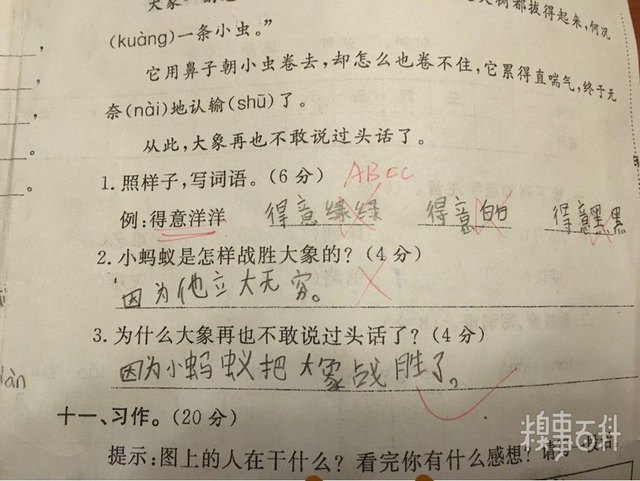 大树都拔得起来,何况
(kuàng)一条小虫。”
它用鼻子朝小虫卷去,却怎么也卷不住,它累得直喘气,终于无
奈(nài)地认输(shū)了。
从此,大象再也不敢说过头话了。
1.照样子,写词语。(6分) ABCC
例:得意洋洋 得意绿绿 得意白白 得意黑黑
2.小蚂蚁是怎样战胜大象的?(4分)
因为他立大无穷。
3.为什么大象再也不敢说过头话了?(4分)
因为小蚂蚁把大象战胜了。
十一、习作。(20分)
提示:图上的人在干什么?看完你有什么感想?请
糗事百科